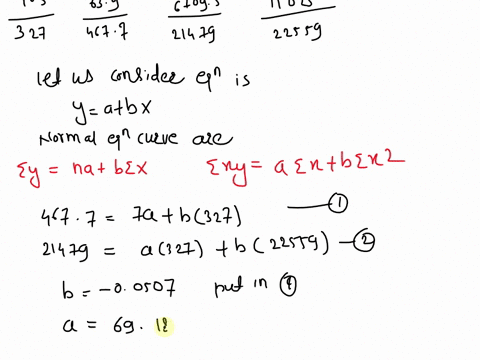 327 467.7 21479 22559
Let us consider eqⁿ is
y = a+bx
Normal eqⁿ curve are
Σy = na + bΣx Σxy = aΣx + bΣx2
467.7 = 7a + b(327) ①
21479 = a(327) + b(22559) ②
b = -0.0507 put in
a = 69.18